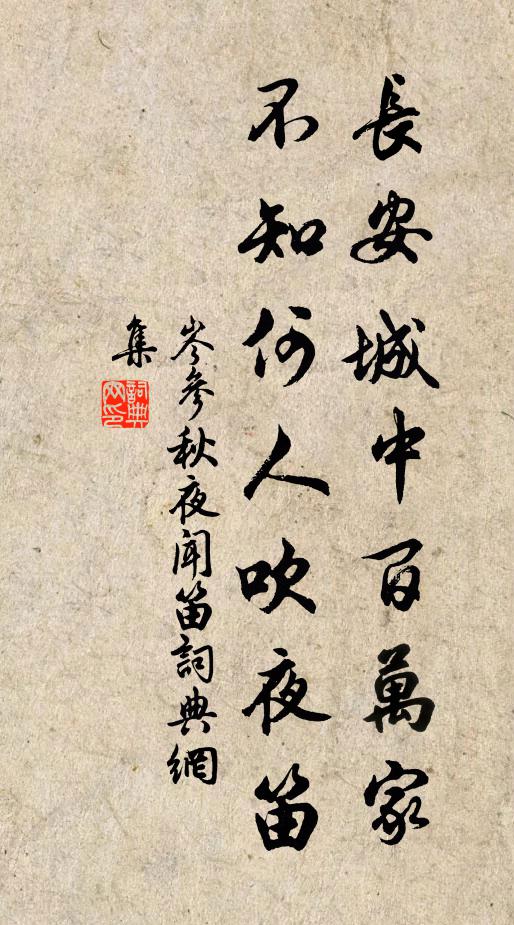 長安城中百萬家
不知何人吹夜笛
岑參秋夜聞笛詞典網
集
詞典網印